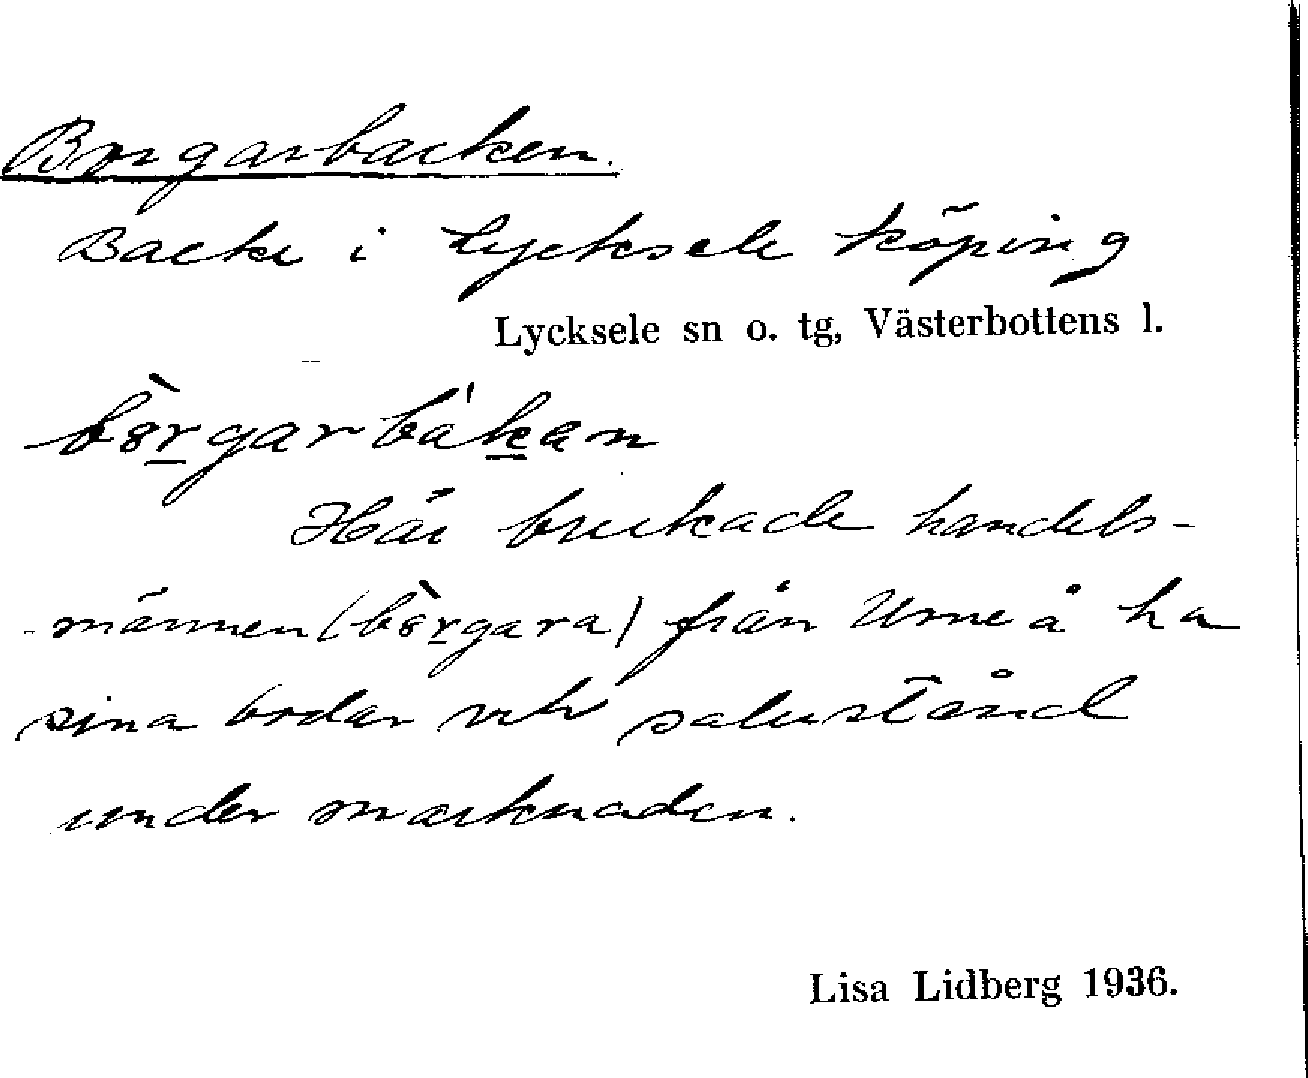 Borgarbacken.
Backe i Lycksele köping
Lycksele sn o. tg, Västerbottens l.
bòrgarbákan
Här brukade handels-
männen (bòrgara) från Umeå ha
sina bodar och salustånd
under marknaden.
Lisa Lidberg 1936.